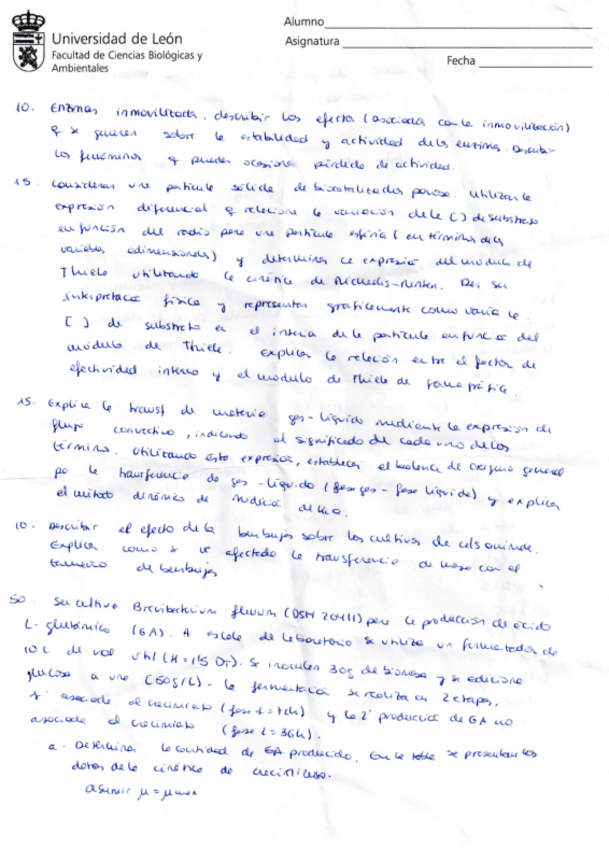 Universidad de León
Facultad de Ciencias Biológicas y
Ambientales
Alumno
Asignatura
Fecha
10. Enzimas inmovilizada. describir los efecto (asociada con la inmovilización)
q se generen sobre la estabilidad y actividad de las enzima. Describir
los fenómenos q puedan ocasionar pérdida de actividad.
15. Considerar una partícula sólida de biocatalizador porosa. Utilizar la
expresión diferencial q relaciona la variación de la [ ] de substrato
en función del radio para una partícula esférica (en términos de las
variables adimensionales) y determinar la expresión del módulo de
Thiele utilizando la cinética de Michaelis-Menten. Dar su
interpretación física y representar gráficamente como varía la
[ ] de substrato en el interior de la partícula en función del
módulo de Thiele. Explicar la relación entre el factor de
efectividad interno y el módulo de Thiele de forma gráfica.
15. Explica la transf de materia gas-líquido mediante la expresión de
flujo convectivo, indicando el significado de cada uno de los
término. Utilizando esta expresión, establecer el balance de oxígeno general
pa la transferencia de gas-líquido (fase gas - fase líquida) y explicar
el método dinámico de medición de KLa.
10. Describir el efecto de la burbujas sobre los cultivos de céls animale.
Explica como se ve afectada la transferencia de masa con el
tamaño de burbujas
50. Se cultiva Brevibacterium flavum (DSM 20411) para la producción de ácido
L-glutámico (GA). A escala de laboratorio se utiliza un fermentador de
10 L de vol útil (H = 1,5 DT). Se inoculen 30g de biomasa y se adiciona
glucosa a una [50g/L]. La fermentación se realiza en 2 etapas.
1ª asociada al crecimiento (fase 1 = 12h) y la 2ª producción de GA no
asociada al crecimiento (fase 2 = 36h).
a. Determinar la cantidad de GA producido. En la tabla se presentan los
datos de la cinética de crecimiento.
Asumir µ = µmax